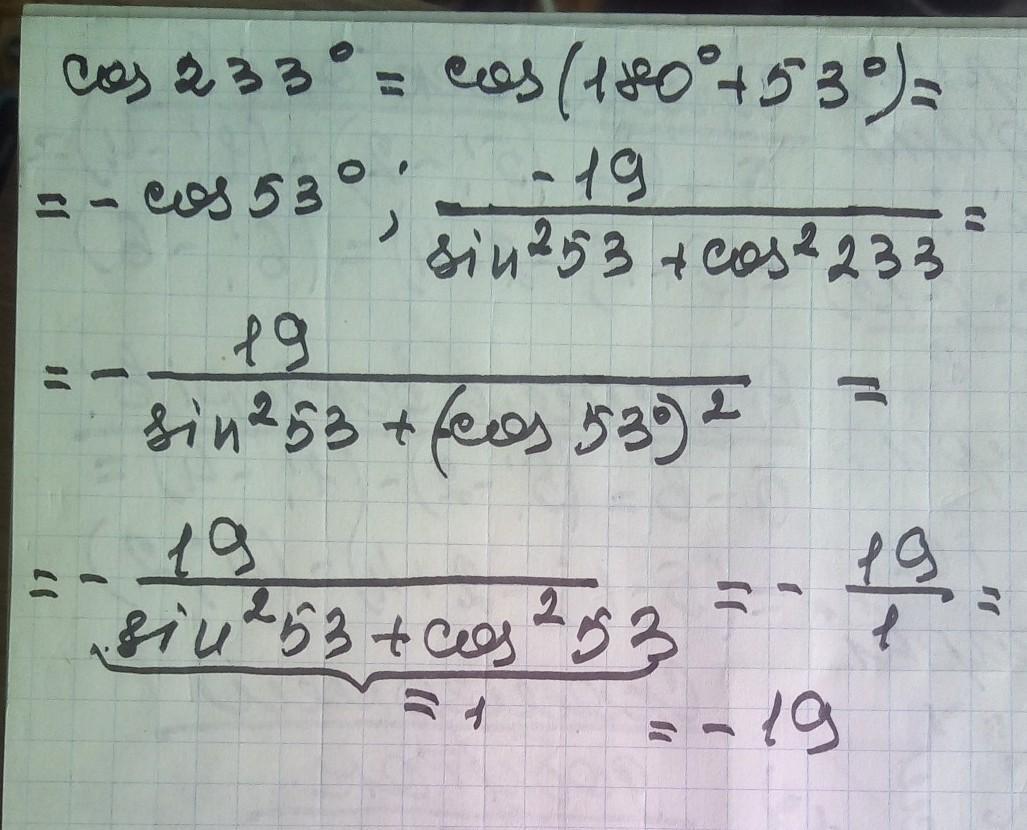 cos 233° = cos(180° + 53°) =
= - cos 53° ; -19 / (sin²53 + cos²233) =
= - 19 / (sin²53 + (-cos 53°)²) =
= - 19 / (sin²53 + cos²53) = - 19 / 1 =
= 1
= - 19